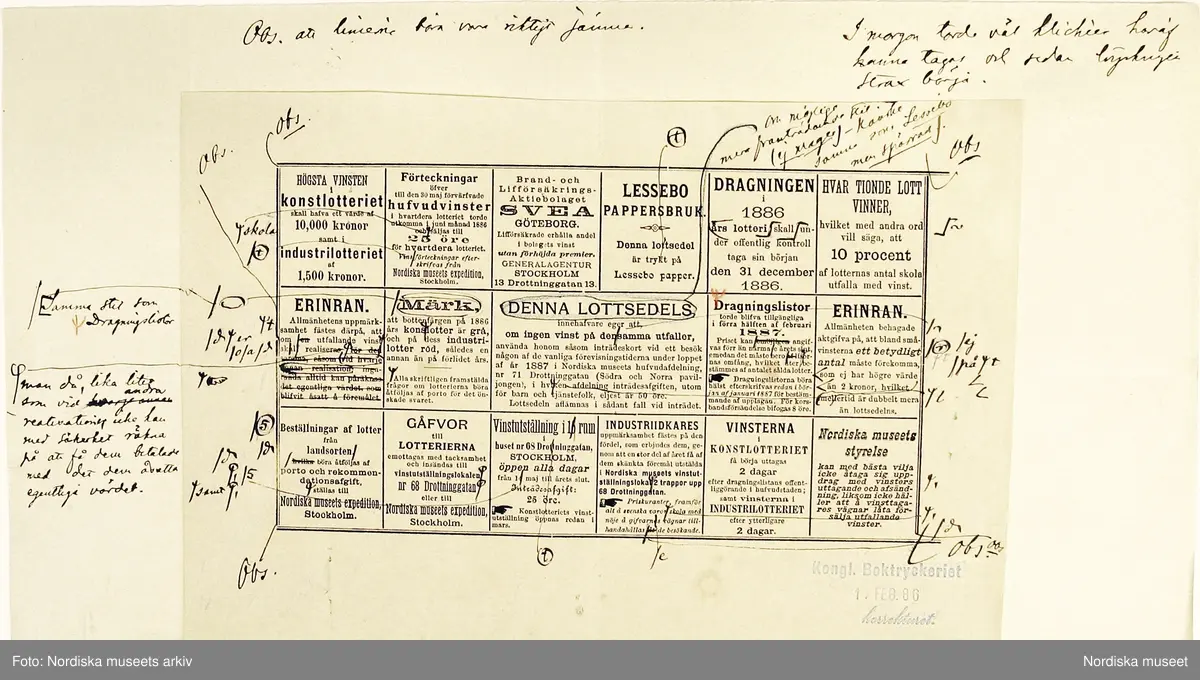 Obs. att linierna böra vara riktigt jämna.
I morgon torde väl klichier häraf
kunna tagas och sedan
strax börja.
om möjligt
mera framträdande stil.
samma som Lessebo
men spärrad).
Obs.
Obs.
Obs
HÖGSTA VINSTEN
i
konstlotteriet
skall hafva ett värde af
10,000 kronor
samt i
industrilotteriet
af
1,500 kronor.
Förteckningar
öfver
till den 30 maj förvärfvade
hufvudvinster
i hvartdera lotteriet torde
utkomma i juni månad 1886
och säljas till
25 öre
för hvartdera lotteriet.
Vinstförteckningar efter-
skrifvas från
Nordiska museets expedition,
Stockholm.
Brand- och
Lifförsäkrings-
Aktiebolaget
SVEA
GÖTEBORG.
Lifförsäkrade erhålla andel
i bolagets vinst
utan förhöjda premier.
GENERALAGENTUR
STOCKHOLM
13 Drottninggatan 13.
LESSEBO
PAPPERSBRUK.
Denna lottsedel
är tryckt på
Lessebo papper.
DRAGNINGEN
i
1886
års lotteri skall un-
der offentlig kontroll
taga sin början
den 31 december
1886.
HVAR TIONDE LOTT
VINNER,
hvilket med andra ord
vill säga, att
10 procent
af lotternas antal skola
utfalla med vinst.
skola
Samma stil som
Dragningslistor
ERINRAN.
Allmänhetens uppmärk-
samhet fästes derpå, att
om utfallande vinst
realiseras,
Märk,
att bottenfärgen på 1886
års konstlotter är grå,
och på dess industri-
lotter röd, således en
annan än på förlidet års.
Alla skriftligen framstälda
frågor om lotterierna böra
åtföljas af porto för det ön-
skade svaret.
DENNA LOTTSEDELS
innehafvare eger att,
om ingen vinst på densamma utfaller,
använda honom såsom inträdeskort vid ett besök
någon af de vanliga förevisningstiderna under loppet
af år 1887 i Nordiska museets hufvudafdelning,
nr 71 Drottninggatan (Södra och Norra pavil-
jongen), i hvilken afdelning inträdesafgiften, utom
för barn och tjenstefolk, eljest är 50 öre.
Lottsedeln aflämnas i sådant fall vid inträdet.
Dragningslistor
torde blifva tillgängliga
i förra hälften af februari
1887.
Dragningslistorna böra
helst efterskrifvas redan före
af januari 1887 för bestäm-
mande af upplagan. För kors-
bandsförsändelse bifogas 8 öre.
ERINRAN.
Allmänheten behagade
aktgifva på, att bland små-
vinsterna ett betydligt
antal måste förekomma,
som ej har högre värde
än 2 kronor, hvilket
emellertid är dubbelt mera
än lottsedelns.
man då, lika litet
som vid andra
realisationer icke kan
med säkerhet räkna
på att få dem betalade
med det dem åsatta
egentliga värdet.
Beställningar af lotter
från
landsorten
böra åtföljas af
porto och rekommen-
dationsafgift,
ställas till
Nordiska museets expedition,
Stockholm.
samt
GÅFVOR
till
LOTTERIERNA
emottagas med tacksamhet
och insändas till
vinstutställningslokalen
nr 68 Drottninggatan
eller till
Nordiska museets expedition,
Stockholm.
Vinstutställning i 16 rum
i
huset nr 68 Drottninggatan,
STOCKHOLM,
öppen alla dagar
från 1 maj till årets slut.
Inträdesafgift:
25 öre.
Konstlotteriets vinst-
utställning öppnas redan i
mars.
INDUSTRIIDKARES
uppmärksamhet fästes på den
fördel, som erbjudes dem, ge-
nom att en stor del af året få af
dem skänkta föremål utstälda
i Nordiska museets vinstut-
ställningslokal 2 trappor upp
68 Drottninggatan.
Priskuranter, framför
allt å svenska varor, skola med
nöje å gifvarens vägnar till-
handahållas de besökande.
VINSTERNA
i
KONSTLOTTERIET
få börja uttagas
2 dagar
efter dragningslistans offent-
liggörande i hufvudstaden;
samt vinsterna i
INDUSTRILOTTERIET
efter ytterligare
2 dagar.
Nordiska museets
styrelse
kan med bästa vilja
icke åtaga sig upp-
drag med vinsters
uttagande och afsänd-
ning, liksom icke häl-
ler att å vinsttaga-
res vägnar låta för-
sälja utfallande
vinster.
Obs.
Obs
Kongl. Boktryckeriet
1. FEB. 86
Korrekturet.
Foto: Nordiska museets arkiv
Nordiska museet